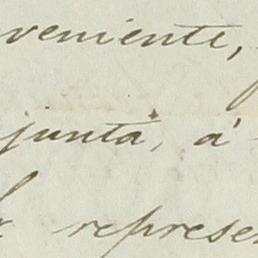 veniente,
junta, á
represen